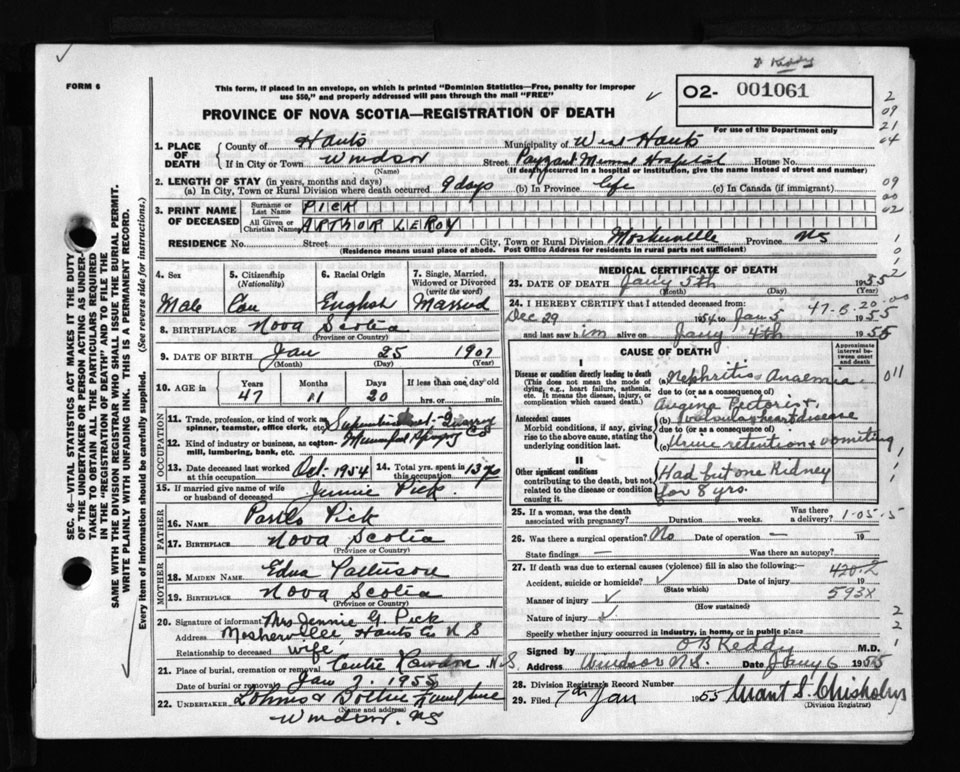 D Keddy
FORM 6
This form, if placed in an envelope, on which is printed "Dominion Statistics—Free, penalty for improper
use $50," and properly addressed will pass through the mail "FREE"
PROVINCE OF NOVA SCOTIA—REGISTRATION OF DEATH
O2- 001061
For use of the Department only
2
09
21
04
09
00
02
1
0
1
SEC. 46—VITAL STATISTICS ACT MAKES IT THE DUTY
OF THE UNDERTAKER OR PERSON ACTING AS UNDER-
TAKER TO OBTAIN ALL THE PARTICULARS REQUIRED
IN THE "REGISTRATION OF DEATH" AND TO FILE THE
SAME WITH THE DIVISION REGISTRAR WHO SHALL ISSUE THE BURIAL PERMIT.
WRITE PLAINLY WITH UNFADING INK. THIS IS A PERMANENT RECORD.
Every item of information should be carefully supplied. (See reverse side for instructions.)
1. PLACE OF DEATH
County of Hants Municipality of West Hants
If in City or Town Windsor Street Payzant Memorial Hospital House No.
(Name) (If death occurred in a hospital or institution, give the name instead of street and number)
2. LENGTH OF STAY (in years, months and days)
(a) In City, Town or Rural Division where death occurred 9 days (b) In Province life (c) In Canada (if immigrant)
3. PRINT NAME OF DECEASED
Surname or Last Name PICK
All Given or Christian Names ARTHOR LEROY
RESIDENCE No. Street City, Town or Rural Division Mosherville Province NS
(Residence means usual place of abode. Post Office Address for residents in rural parts not sufficient)
4. Sex
Male
5. Citizenship (Nationality)
Can
6. Racial Origin
English
7. Single, Married, Widowed or Divorced (write the word)
Married
8. BIRTHPLACE Nova Scotia
(Province or Country)
9. DATE OF BIRTH Jan 25 1907
(Month) (Day) (Year)
10. AGE in Years Months Days If less than one day old
47 11 20 hrs. or min.
OCCUPATION
11. Trade, profession, or kind of work as spinner, teamster, office clerk, etc. Superintendent-Quarry
12. Kind of industry or business, as cotton-mill, lumbering, bank, etc. Co
13. Date deceased last worked at this occupation Oct-1954 14. Total yrs. spent in this occupation 13 yrs
15. If married give name of wife or husband of deceased Jennie Pick
FATHER
16. NAME Pick
17. BIRTHPLACE Nova Scotia
(Province or Country)
MOTHER
18. MAIDEN NAME Edna
19. BIRTHPLACE Nova Scotia
(Province or Country)
20. Signature of informant Mrs Jennie G. Pick
Address Mosherville Hants Co N S
Relationship to deceased wife
21. Place of burial, cremation or removal Centre Rawdon N.S.
Date of burial or removal Jan 7. 1955
22. UNDERTAKER
(Name and address)
Windsor, NS
MEDICAL CERTIFICATE OF DEATH
23. DATE OF DEATH Jany 5th 1955
(Month) (Day)
2
24. I HEREBY CERTIFY that I attended deceased from:
Dec 29 1954 to Jan 5 1955
and last saw him alive on Jany 4th 1955
CAUSE OF DEATH
Approximate interval between onset and death
I
Disease or condition directly leading to death
(This does not mean the mode of dying, e.g., heart failure, asthenia, etc. It means the disease, injury, or complication which caused death.)
(a) Nephritis Anaemia 011
due to (or as a consequence of)
Antecedent causes
Morbid conditions, if any, giving rise to the above cause, stating the underlying condition last.
Angina Pectoris +
(b) heart disease
due to (or as a consequence of)
(c) Urine retention & vomiting
II
Other significant conditions
contributing to the death, but not related to the disease or condition causing it.
Had but one Kidney
for 8 yrs.
25. If a woman, was the death associated with pregnancy? Duration weeks. Was there a delivery? 1-05-5
26. Was there a surgical operation? No Date of operation — 19
State findings — Was there an autopsy?
27. If death was due to external causes (violence) fill in also the following:—
420-2
Accident, suicide or homicide? Date of injury 19
(State which)
593X
Manner of injury
(How sustained)
Nature of injury
Specify whether injury occurred in industry, in home, or in public place
Signed by O B Keddy M.D.
Address Windsor N.S. Date Jany 6 1955
28. Division Registrar's Record Number
29. Filed 7th Jan 1955 Grant S. Chisholm
(Division Registrar)